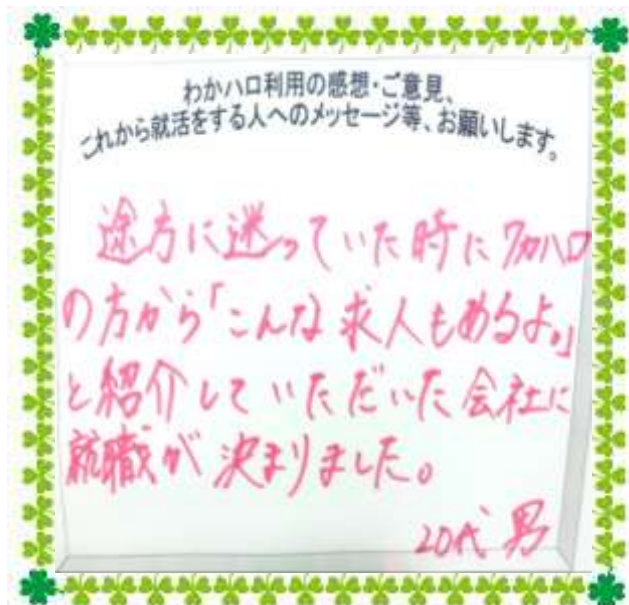 わかハロ利用の感想・ご意見、
これから就活をする人へのメッセージ等、お願いします。
途方に迷っていた時にワカハロ
の方から「こんな求人もあるよ。」
と紹介していただいた会社に
就職が決まりました。
20代 男